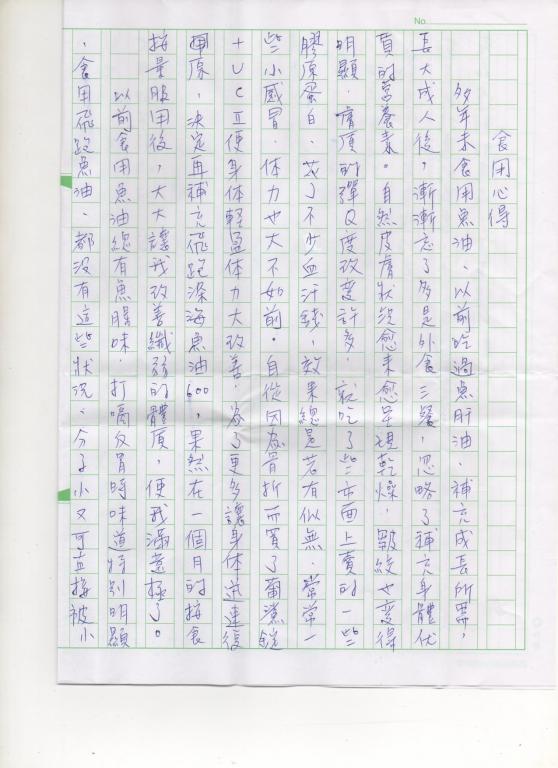 No.
食用心得
多年未食用魚油、以前吃過魚肝油.補充成長所需,
長大成人後,漸漸忘了多是外食三餐,忽略了補充身體優
質的營養素。自然皮膚狀況愈來愈呈現乾燥.皺紋也變得
明顯.膚質的彈Q度改變許多.就吃了些市面上賣的一些
膠原蛋白.花了不少血汗錢,效果總是若有似無.常常一
些小感冒.体力也大不如前。自從因為骨折而買了葡濃錠
+UCⅡ便身体輕盈体力大改善.為了更多讓身体迅速復
原,決定再補充飛跑深海魚油600,果然在一個月的搭食
搭量服用後,大大讓我改善纖弱的體質,使我滿意極了。
以前食用魚油總有魚腥味.打嗝反胃時味道特別明顯
.食用飛跑魚油、都沒有這些狀況、分子小又可直接被小